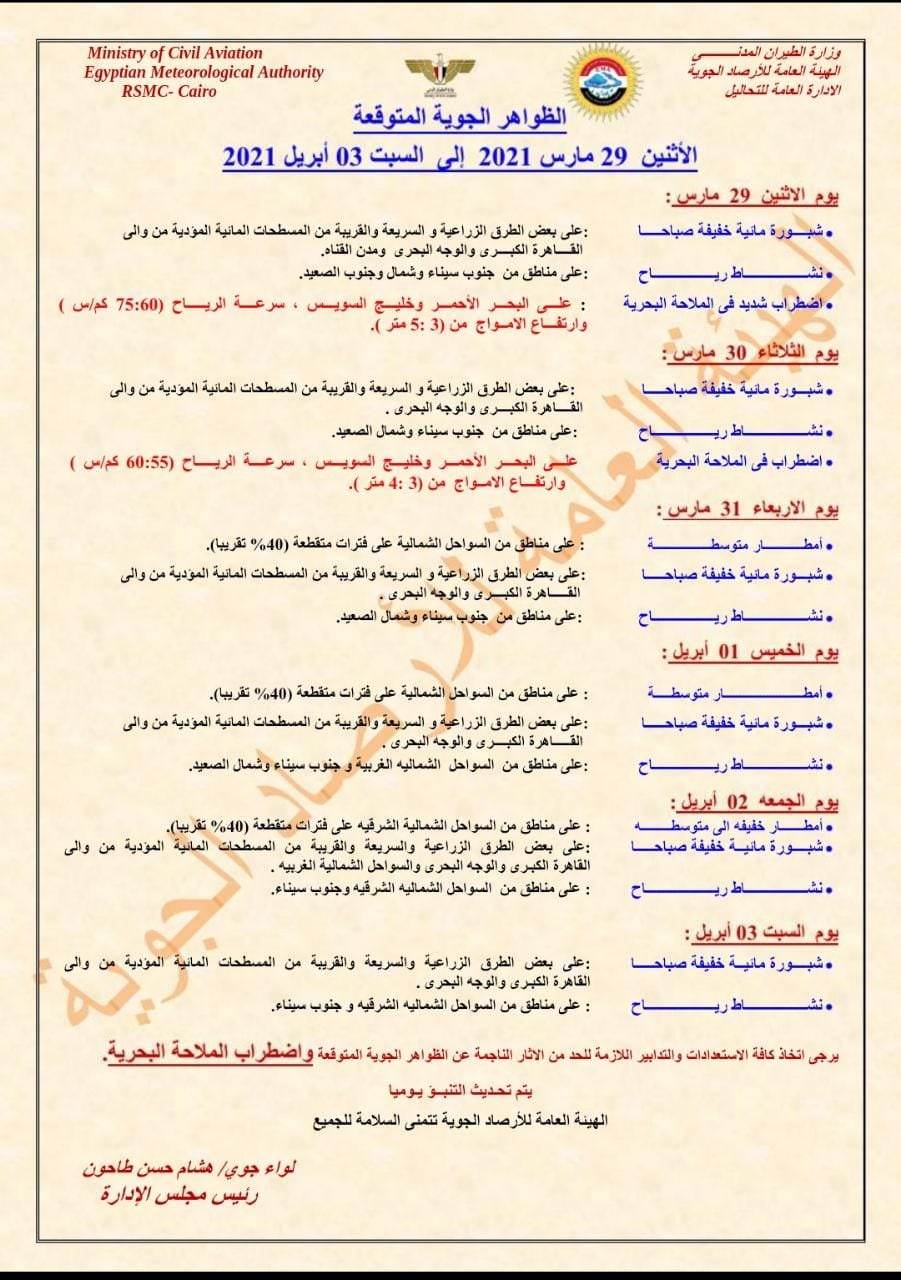 Ministry of Civil Aviation
Egyptian Meteorological Authority
RSMC- Cairo
وزارة الطيران المدنـــــــى
الهيئة العامة للأرصاد الجوية
الادارة العامة للتحاليل
الظواهر الجوية المتوقعة
الأثنين 29 مارس 2021 إلى السبت 03 أبريل 2021
يوم الاثنين 29 مارس :
• شبـــورة مائية خفيفة صباحـــا :على بعض الطرق الزراعية و السريعة والقريبة من المسطحات المائية المؤدية من والى
القـــاهرة الكبـــرى والوجه البحرى ومدن القناه.
• نشـــــــــــاط ريـــــــــاح :على مناطق من جنوب سيناء وشمال وجنوب الصعيد.
• اضطراب شديد فى الملاحة البحرية : علـــى البحـــر الأحمـــر وخلـيج السويـــس ، سرعـــة الريـــاح (75:60 كم/س )
وارتفـــاع الامـــواج من (3 :5 متر ).
يوم الثلاثاء 30 مارس :
• شبـــورة مائية خفيفة صباحـــا :على بعض الطرق الزراعية و السريعة والقريبة من المسطحات المائية المؤدية من والى
القـــاهرة الكبـــرى والوجه البحرى .
• نشـــــــــــاط ريـــــــــاح :على مناطق من جنوب سيناء وشمال الصعيد.
• اضطراب فى الملاحة البحرية علـــى البحـــر الأحمـــر وخلـيج السويـــس ، سرعـــة الريـــاح (60:55 كم/س )
وارتفـــاع الامـــواج من (3 :4 متر ).
يوم الاربعاء 31 مارس :
• أمطـــــــار متوسطـــــــــــة : على مناطق من السواحل الشمالية على فترات متقطعة (40% تقريبا).
• شبـــورة مائية خفيفة صباحـــا :على بعض الطرق الزراعية و السريعة والقريبة من المسطحات المائية المؤدية من والى
القـــاهرة الكبـــرى والوجه البحرى .
• نشـــــــــــاط ريـــــــــاح :على مناطق من جنوب سيناء وشمال الصعيد.
يوم الخميس 01 أبريل :
• أمطـــــــــــــار متوسطـــــة : على مناطق من السواحل الشمالية على فترات متقطعة (40% تقريبا).
• شبـــورة مائية خفيفة صباحـــا :على بعض الطرق الزراعية و السريعة والقريبة من المسطحات المائية المؤدية من والى
القـــاهرة الكبـــرى والوجه البحرى .
• نشـــــــــــاط ريـــــــــاح :على مناطق من السواحل الشماليه الغربية و جنوب سيناء وشمال الصعيد.
يوم الجمعه 02 أبريل :
• أمطـــــار خفيفه الى متوسطـــــه : على مناطق من السواحل الشمالية الشرقيه على فترات متقطعة (40% تقريبا).
• شبـــورة مائيـــة خفيفة صباحـــا :على بعض الطرق الزراعية والسريعة والقريبة من المسطحات المائية المؤدية من والى
القاهرة الكبـرى والوجه البحرى والسواحل الشمالية الغربيه .
• نشـــــــــــاط ريـــــــــاح : على مناطق من السواحل الشماليه الشرقيه وجنوب سيناء.
يوم السبت 03 أبريل :
• شبـــورة مائيـــة خفيفة صباحـــا :على بعض الطرق الزراعية والسريعة والقريبة من المسطحات المائية المؤدية من والى
القاهرة الكبـرى والوجه البحرى .
• نشـــــــــــاط ريـــــــــاح : على مناطق من السواحل الشماليه الشرقيه و جنوب سيناء.
يرجى اتخاذ كافة الاستعدادات والتدابير اللازمة للحد من الاثار الناجمة عن الظواهر الجوية المتوقعة واضطراب الملاحة البحرية.
يتم تحديث التنبـؤ يـوميا
الهيئة العامة للأرصاد الجوية تتمنى السلامة للجميع
لواء جوي/ هشام حسن طاحون
رئيس مجلس الإدارة
الهيئة العامة للأرصاد الجوية